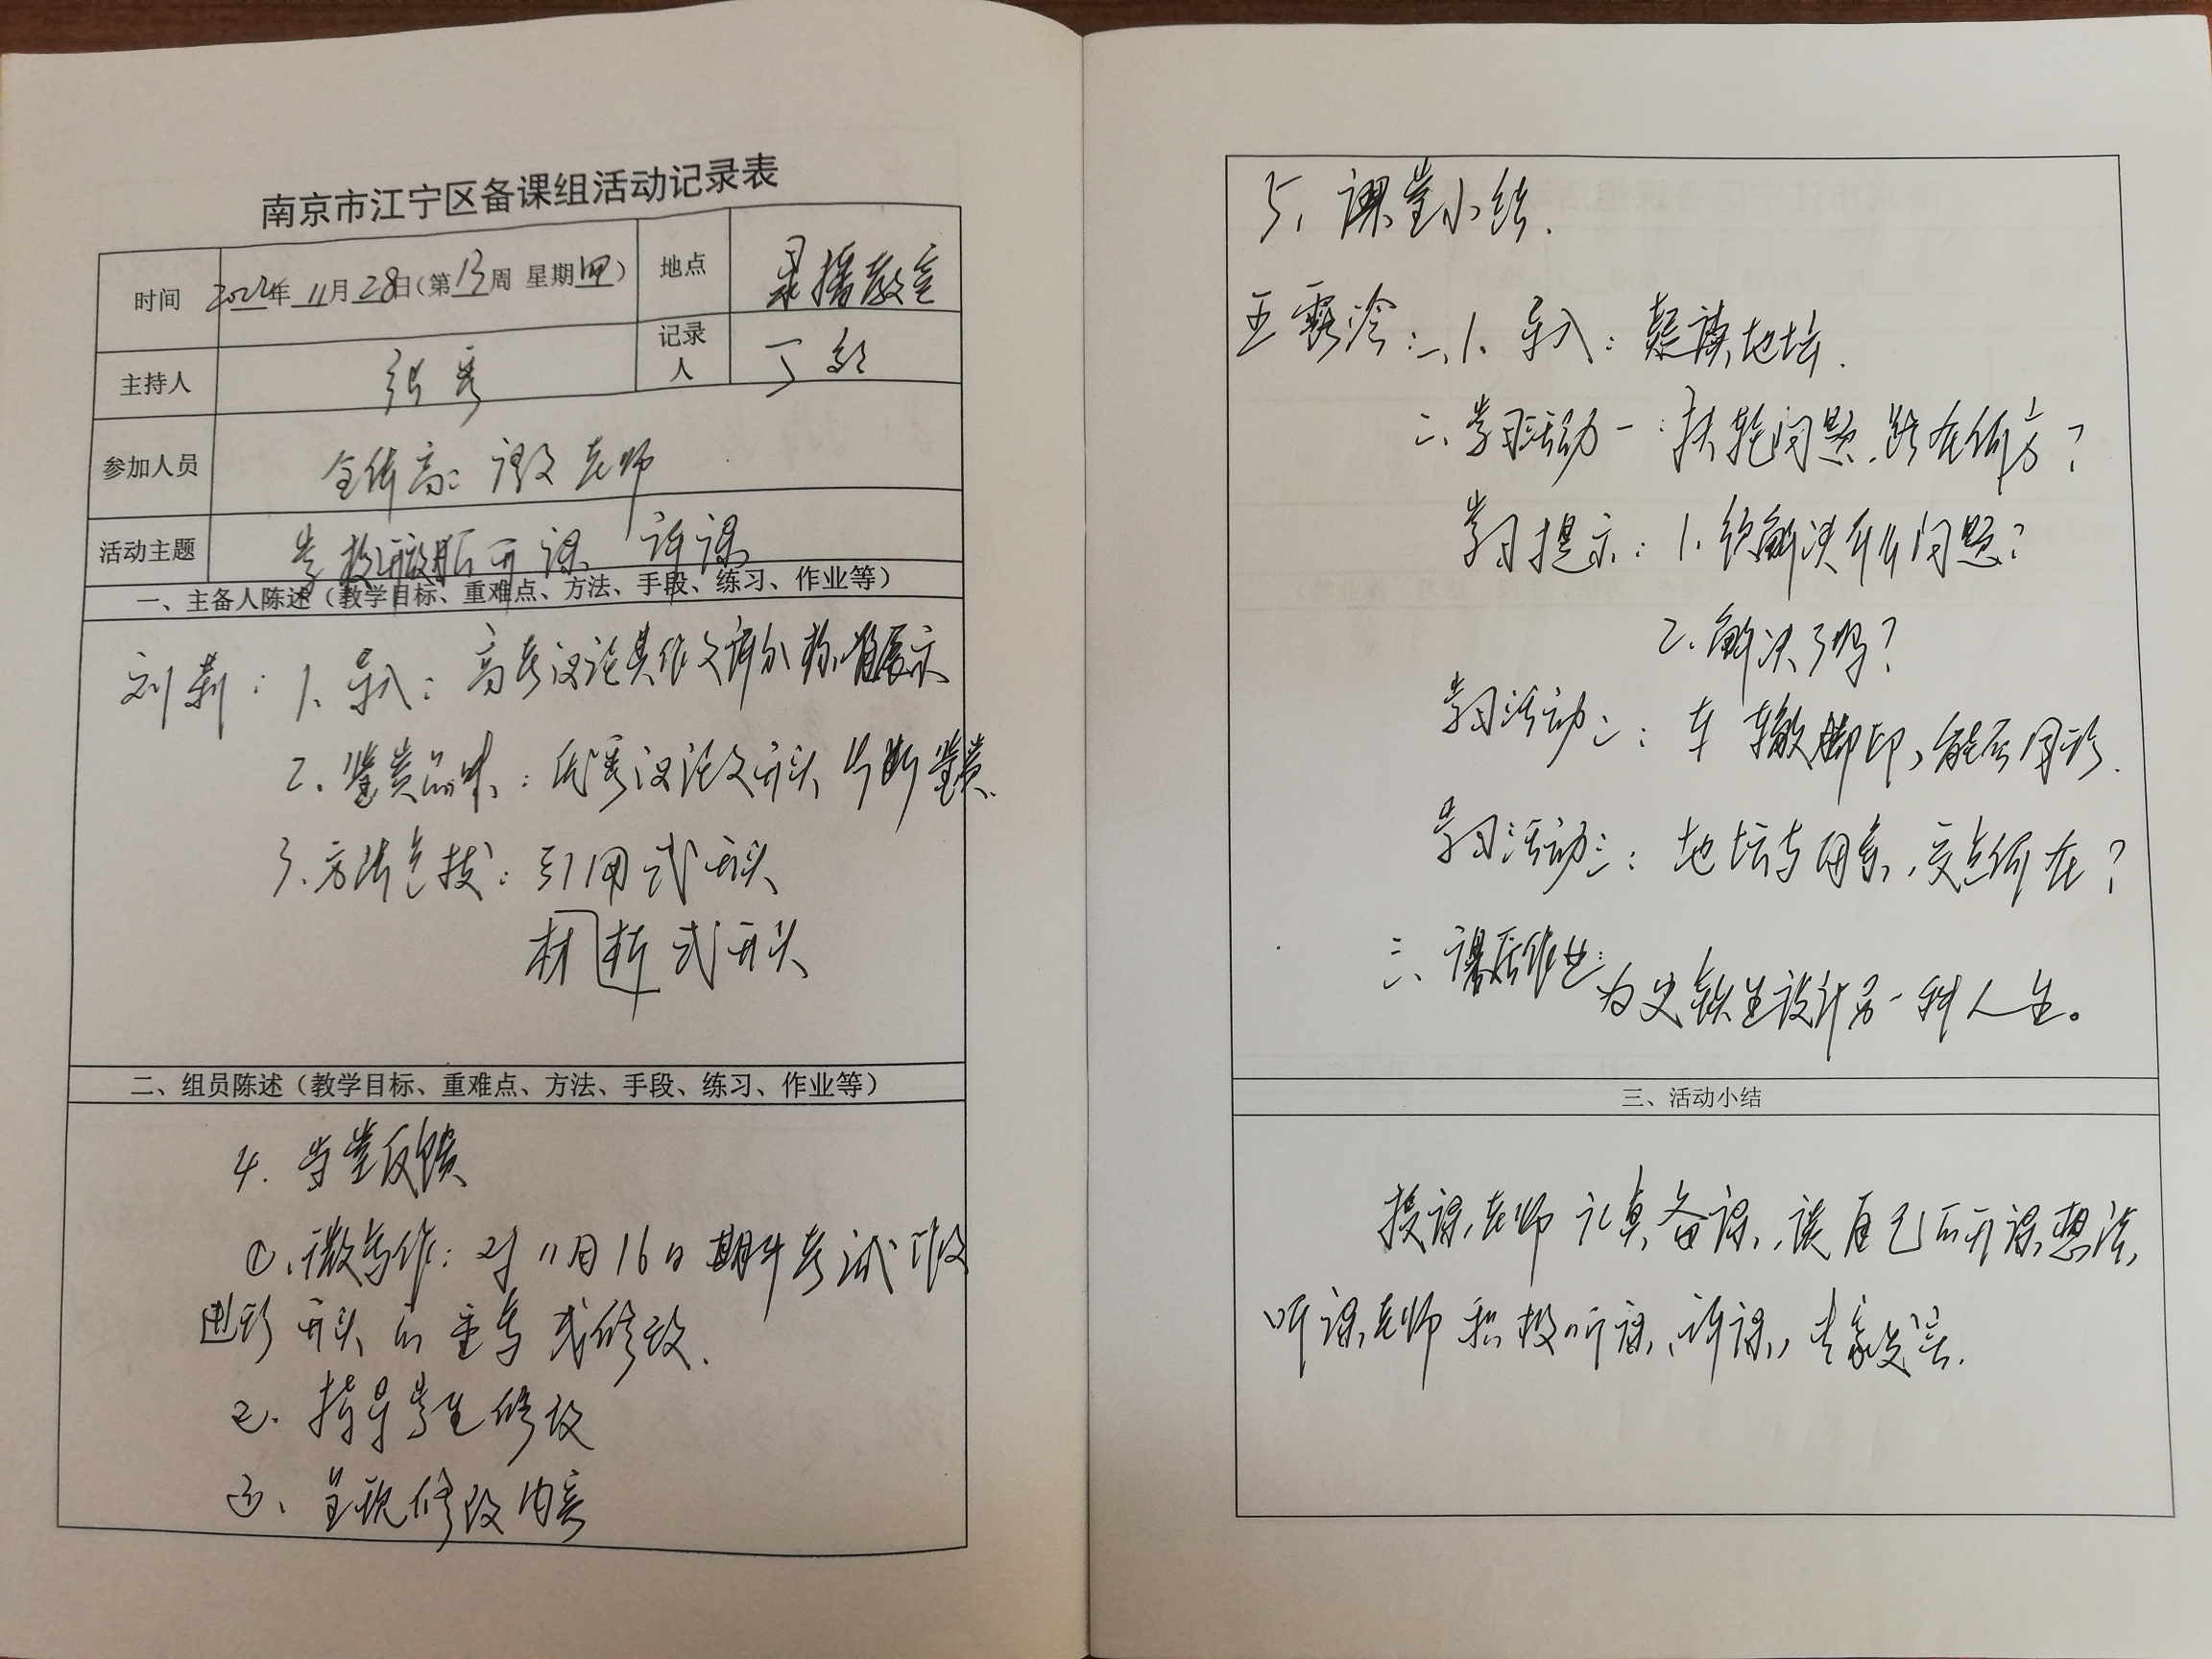 南京市江宁区备课组活动记录表
时间 2022年 11月 28日(第13周 星期四) 地点 录播教室
主持人 张秀 记录人 丁
参加人员 全体高二语文老师
活动主题 开课 评课
一、主备人陈述（教学目标、重难点、方法、手段、练习、作业等）
刘莉：1、导入：高考议论类作文评分标准展示
2、鉴赏品味：优秀议论文开头片断鉴赏
3、方法点拨：引用式开头
材料式开头
二、组员陈述（教学目标、重难点、方法、手段、练习、作业等）
4. 当堂反馈
①、微写作：对11月16日期中考试作文
进行开头的重写或修改.
②. 指导学生修改
③、呈现修改内容
5、课堂小结.
王露冷：一、1、导入：疑读地坛.
二、学习活动一：扶轮问题,路在何方？
学习提示：1、须解决什么问题？
2.解决了吗？
学习活动二：车辙脚印,能否同形.
学习活动三：地坛与母亲,交点何在？
三、课后作业：为史铁生设计另一种人生。
三、活动小结
授课老师认真备课,谈自己的开课想法,
听课老师积极听课,评课,